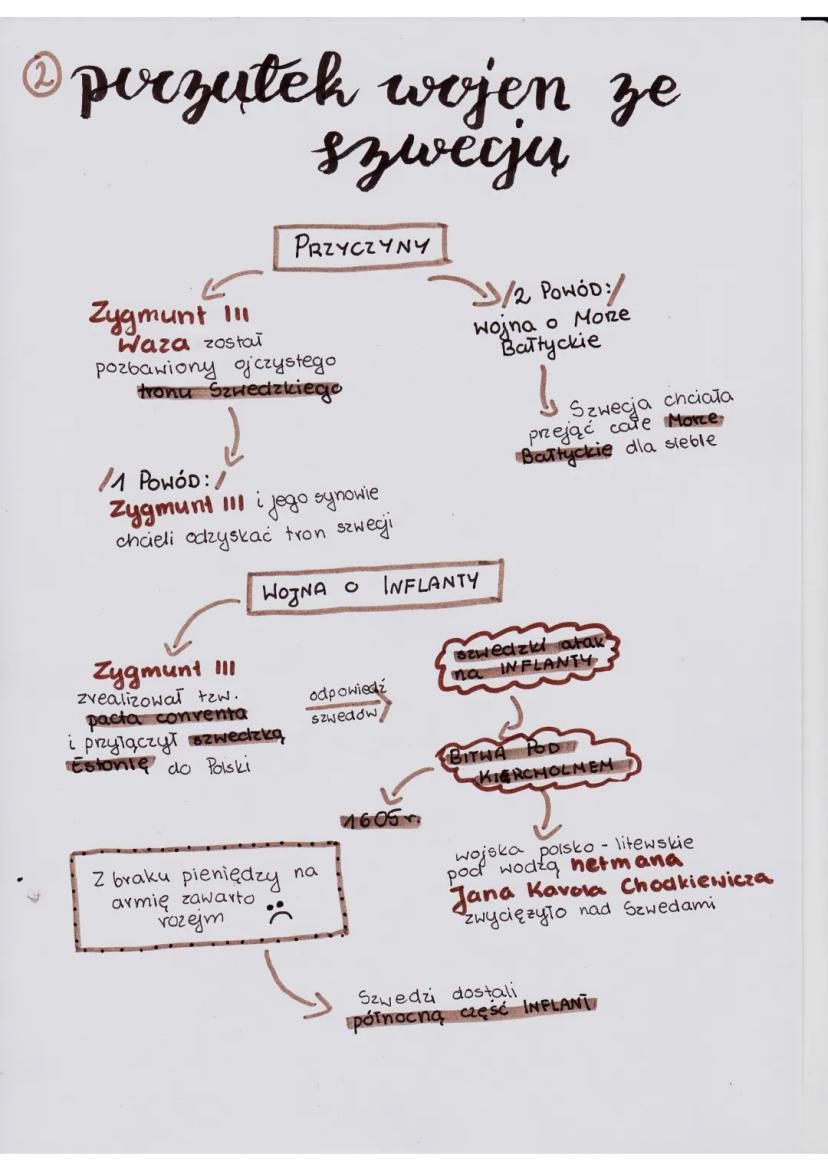 2 początek wojen ze
szwecją
PRZYCZYNY
Zygmunt III
Waza został
pozbawiony ojczystego
tronu Szwedzkiego
/1 Powód:/
Zygmunt III i jego synowie
chcieli odzyskać tron szwecji
/2 Powód:/
wojna o Morze
Bałtyckie
Szwecja chciała
przejąć całe Morze
Bałtyckie dla siebie
WOJNA O INFLANTY
Zygmunt III
zrealizował tzw.
pacta conventa
i przyłączył szwedzką
Estonię do Polski
odpowiedź
szwedów
szwedzki atak
na INFLANTY
BITWA POD
KIERCHOLMEM
1605 r.
wojska polsko-litewskie
pod wodzą hetmana
Jana Karola Chodkiewicza
zwyciężyło nad Szwedami
Z braku pieniędzy na
armię zawarto
rozejm
Szwedzi dostali
północną część INFLANT